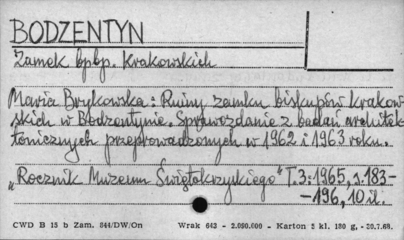 BODZENTYN
Zamek bpbp. Krakowskich
Maria Brykowska: Ruiny zamku biskupów krakow-
skich w Bodzentynie. Sprawozdanie z badań architek-
tonicznych przeprowadzonych w 1962 i 1963 roku.
„Rocznik Muzeum Świętokrzyskiego" T.3:1965, s.183-
-196, 10 il.
CWD B 15 b Zam. 844/DW/On Wrak 642 - 2.090.000 - Karton 5 kl. 180 g, - 20.7.68.